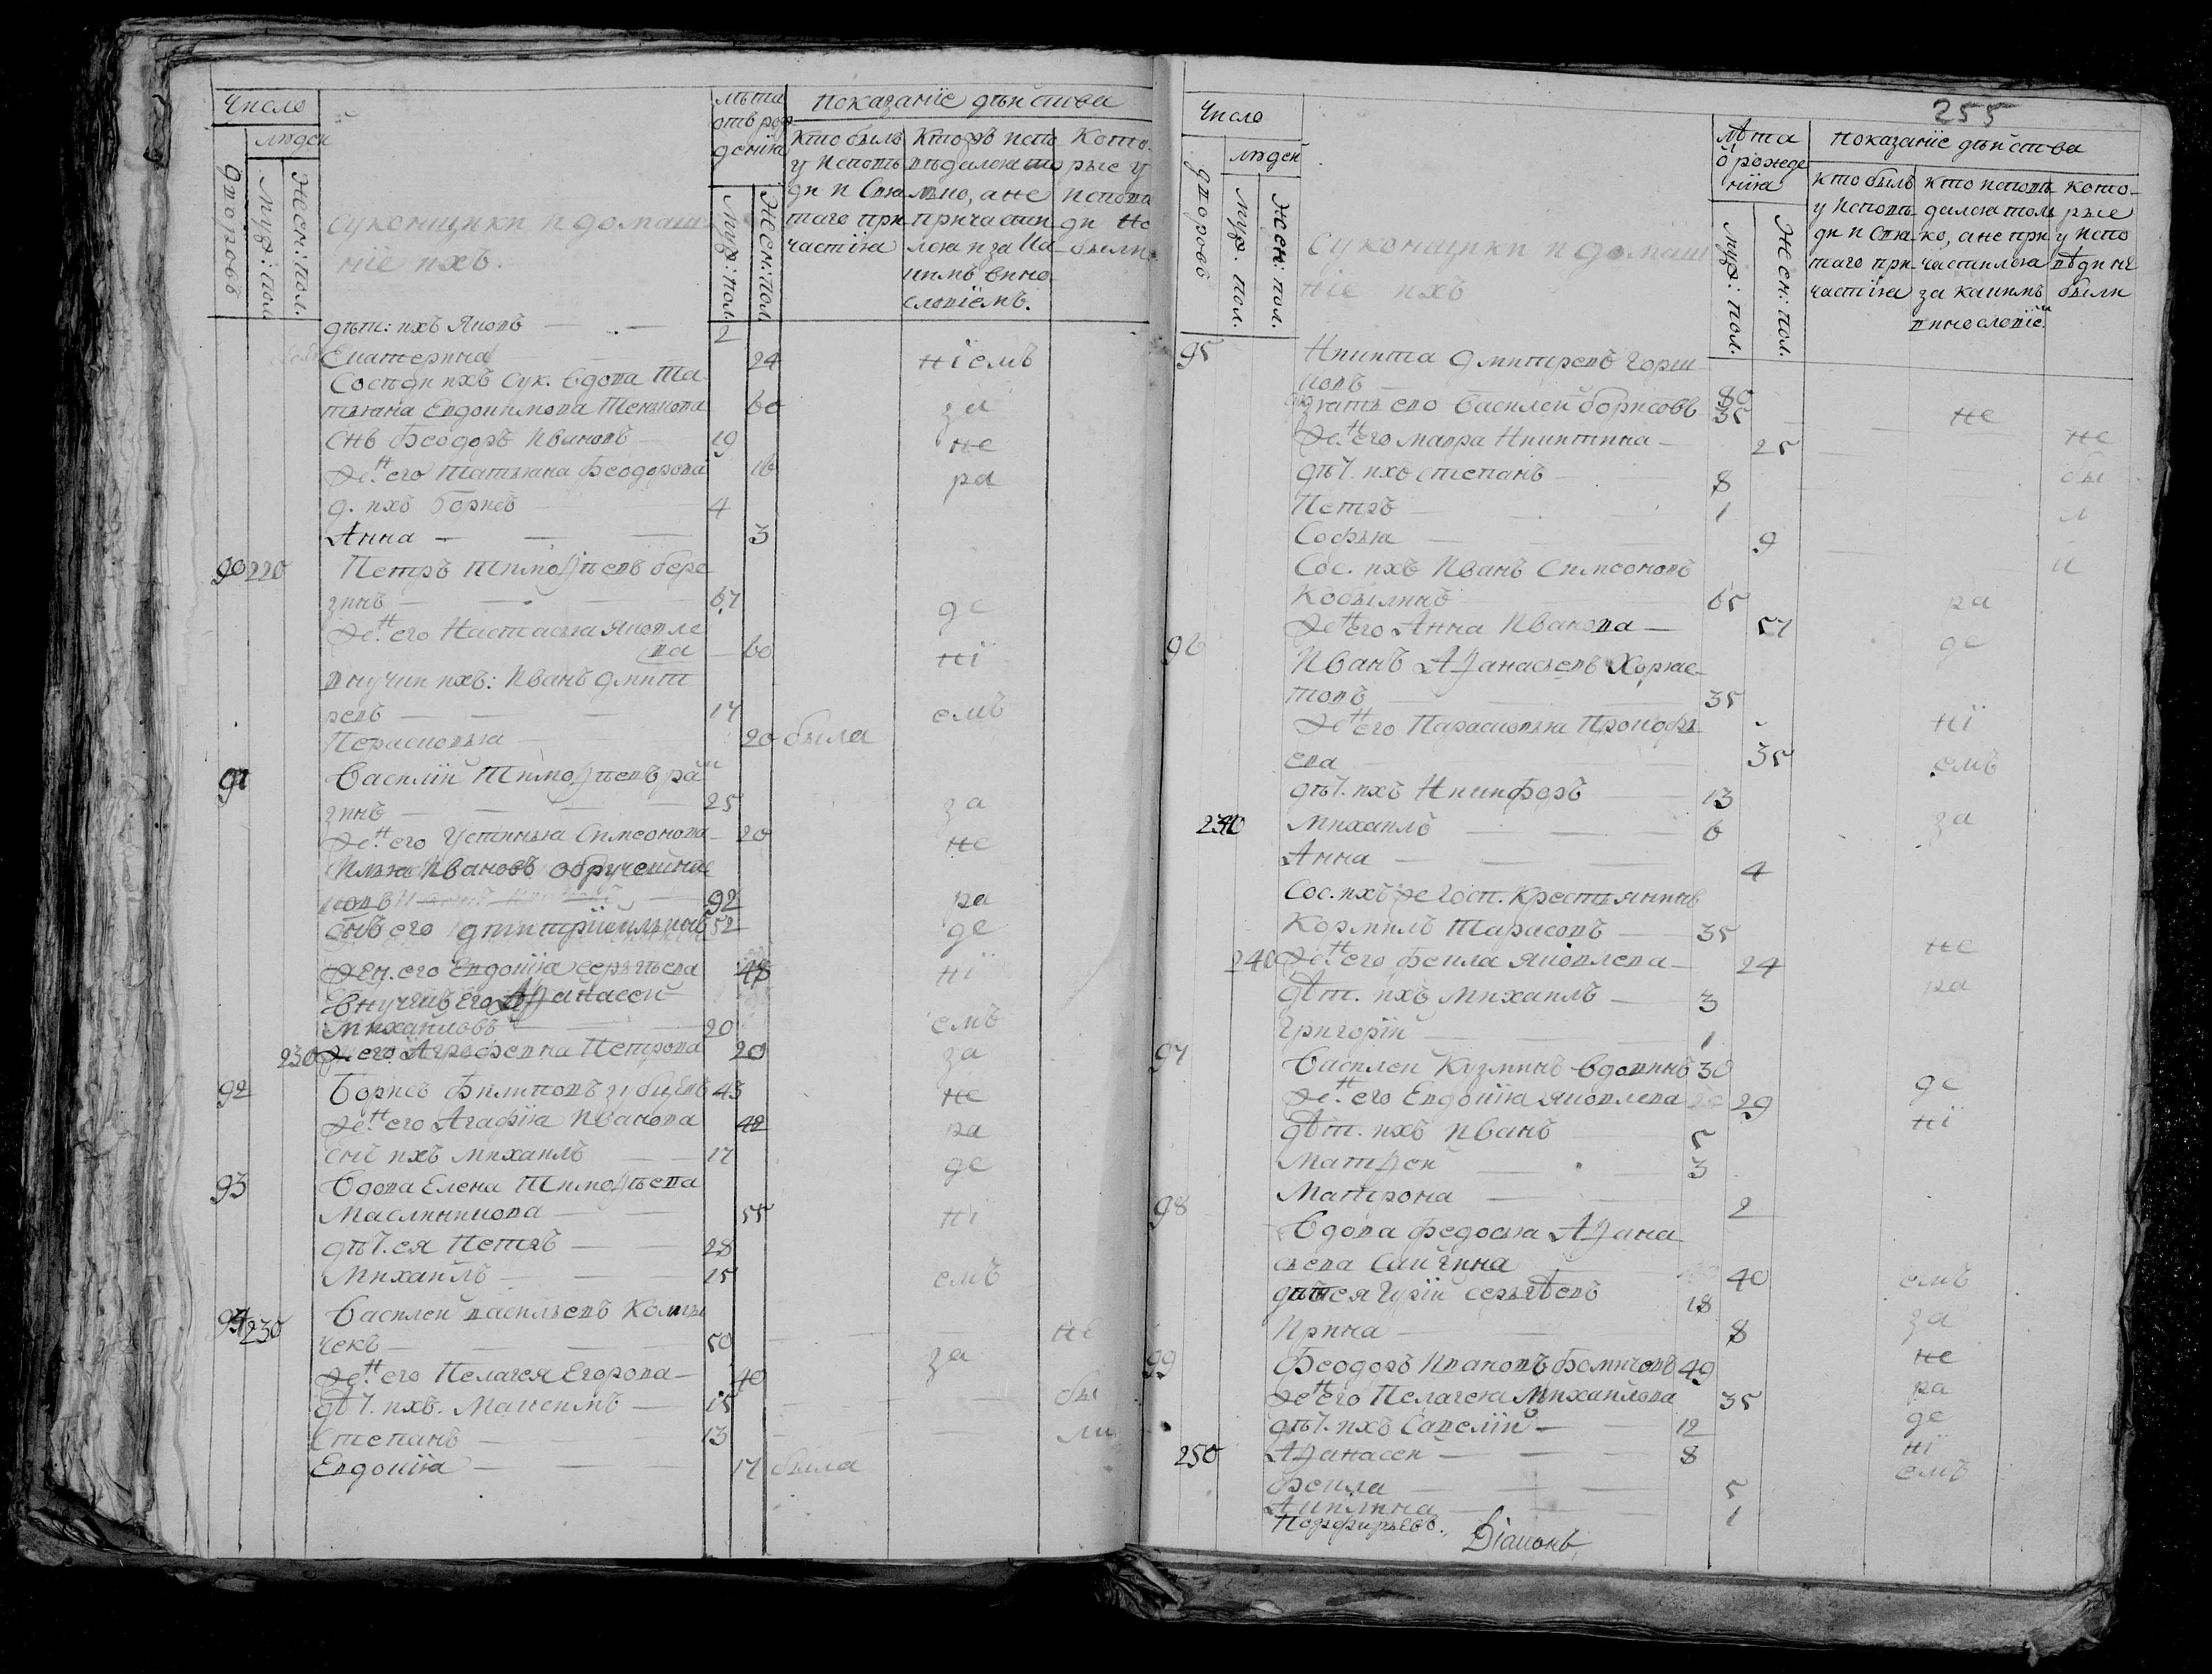 Число
людей
дворовъ
Муж: пол.
Жен: пол.
Суконщики и домаш
ніе ихъ.
лѣта
отъ рож
денія
Муж: пол.
Жен: пол.
Показаніе дѣйства
Кто былъ
у исповѣ
ди и Свя
таго при
частія
Кто испо
вѣдался то
лько, а не
причастил
ся и за ка
кимъ вино
словіемъ.
Кото
рые у
исповѣ
ди не
были
дѣт: ихъ Яковъ 2
Екатерина 24 ніемъ
Сосѣди ихъ Сук. вдова Та
тьяна Евдокимова 60 за
Снъ Ѳеодоръ Ивановъ 19 не
Жен его Татьяна Ѳеодорова 16 ра
д. ихъ Борисъ 4
Анна 3
90 220 Петръ Тимоѳѣевъ Бере
зинъ 67 де
Жен его Настасья Яковле
ва 60 ні
внучки ихъ: Иванъ Дмит
ревъ 17 емъ
Парасковья 20 была
91 Василій Тимоѳѣевъ Ра
зинъ 25 за
Жен его Устинья Симеонова 20 не
Илья Ивановъ
92 ра
снъ его Дмитрій Ильинъ 52 де
Жен. его Евдокія Сергѣева 48 ні
Внучкъ его Аѳанасей
Михайловъ 20 емъ
230 ж его Аграфенна Петрова 20 за
92 Борисъ Филиповъ 43 не
Жен его Агафія Иванова 42 ра
снъ ихъ Михаилъ 17 де
93 Вдова Елена Тимоѳѣева
Масленикова 55 ні
дѣт. ея Петръ 28
Михаилъ 15 емъ
94 230 Василей Васильевъ Колпа
чекъ 50 не
Жен его Пелагея Егорова 40 за
дѣт. ихъ. Максимъ 15 бы
Степанъ 13 ли
Евдокія 17 была
255
Число
людей
дворовъ
Муж. пол.
Жен: пол.
Суконщики и домаш
ніе ихъ
лѣта
ѿ рожде
нія
Муж: пол.
Жен: пол.
Показаніе дѣйства
Кто былъ
у исповѣ
ди и Свя
таго при
частія
Кто исповѣ
дался толь
ко, а не при
частился
за какимъ
винословіем
Кото
рые
у испо
вѣди не
были
95 Никита Дмитревъ Горш
ковъ 80
зять ево Василей Борисовъ 35 не
Жен его Мавра Никитина 25 не
дѣт. ихъ Степанъ 8 бы
Петръ 1 л
Софья 9
Сос. ихъ Иванъ Симеоновъ и
Кобылинъ 65 ра
Жен его Анна Иванова 57
96 Иванъ Аѳанасьевъ де
товъ 35
Жен его Парасковья Прокофь ні
ева 35 емъ
дѣт. ихъ Никифоръ 13
230 Михаилъ 6 за
Анна 4
Сос. ихъ Госп. Крестьянинъ
Кормилъ Тарасовъ 35
240 Жен его Фекла Яковлева 24 не
Дѣт. ихъ Михаилъ 3 ра
Григорій 1
97 Василей Кузминъ Вдовинъ 30
Жен его Евдокія Яковлева 29 де
Дѣт. ихъ Иванъ 5 ні
Матѳей 3
Матрона 2
98 Вдова Федосья Аѳана
сьева Сайгина 40
дѣт ея Гурій Сергѣевъ 18 емъ
Ирина 8 за
99 Ѳеодоръ Ивановъ Ѳомичовъ 49 не
Жен его Пелагея Михайлова 35 ра
дѣт. ихъ Савелій 12 де
250 Аѳанасей 8 ні
Фекла 5 емъ
Акилина 1
Порфирьевъ. Діаконъ